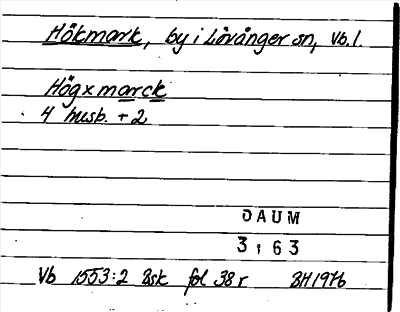 Hökmark, by i Lövånger sn, Vb. l.
Högxmarck
4 husb. + 2
DAUM
3163
Vb 1553:2 Bsk fol 38 r BH 1976